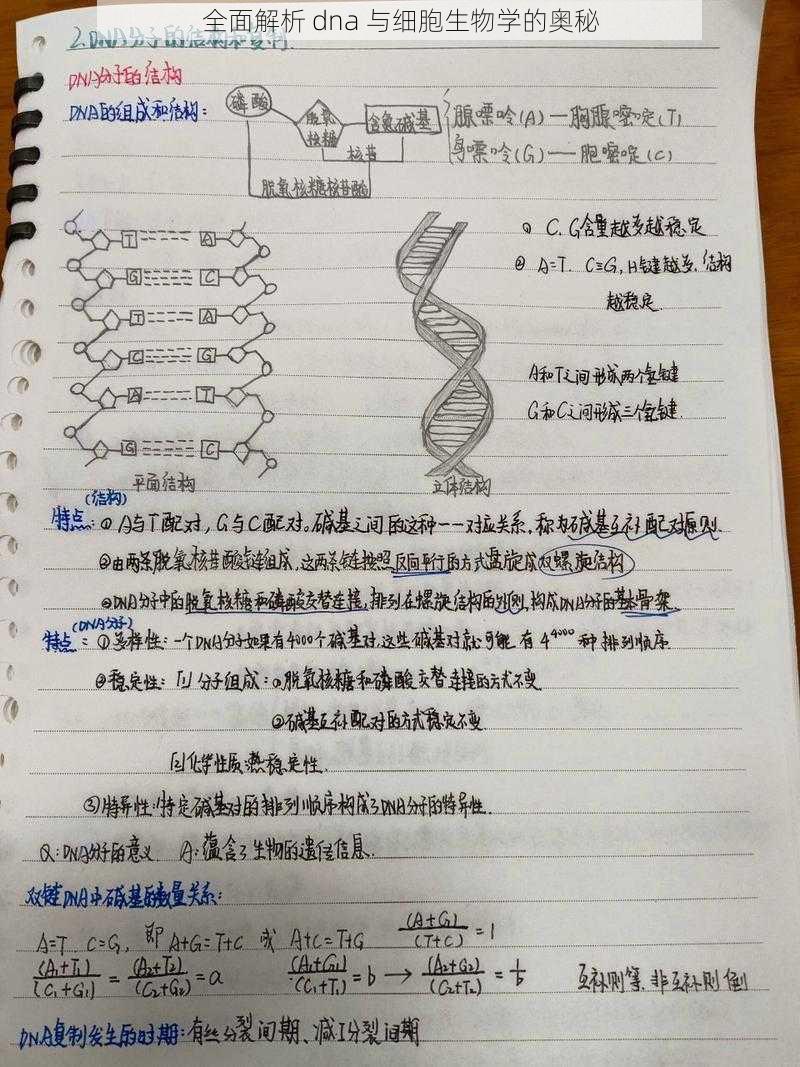 全面解析 dna 与细胞生物学的奥秘
2.DNA分子的结构和复制.
DNA分子的结构
DNA的组成和结构:
磷酸
脱氧核糖
含氮碱基
核苷
脱氧核糖核苷酸
腺嘌呤(A)—胸腺嘧啶(T)
鸟嘌呤(G)—胞嘧啶(C)
T A
G C
T A
C G
A T
G C
平面结构
立体结构
① C.G含量越多越稳定
② A=T. C≡G,H键越多.结构
越稳定.
A和T之间形成两个氢键
G和C之间形成三个氢键.
(结构)
特点:①A与T配对,G与C配对。碱基之间的这种一一对应关系,称为碱基互补配对原则.
②由两条脱氧核苷酸链组成,这两条链按照反向平行的方式盘旋成双螺旋结构
③DNA分子中的脱氧核糖和磷酸交替连接,排列在螺旋结构的外侧,构成DNA分子的基本骨架.
(DNA分子)
特点:①多样性:一个DNA分子如果有4000个碱基对,这些碱基对就可能有4⁴⁰⁰⁰种排列顺序.
②稳定性:[1]分子组成:①脱氧核糖和磷酸交替连接的方式不变
②碱基互补配对的方式稳定不变
[2]化学性质:热稳定性.
③特异性:特定碱基对的排列顺序构成了DNA分子的特异性.
Q:DNA分子的意义 A:蕴含了生物的遗传信息.
双链DNA中碱基的数量关系:
A=T C=G, 即 A+G=T+C 或 A+C=T+G (A+G)/(T+C)=1
(A1+T1)/(C1+G1)=(A2+T2)/(C2+G2)=a (A1+G1)/(C1+T1)=b→(A2+G2)/(C2+T2)=1/b 互补则等,非互补则倒
DNA复制发生的时期:有丝分裂间期、减I分裂间期